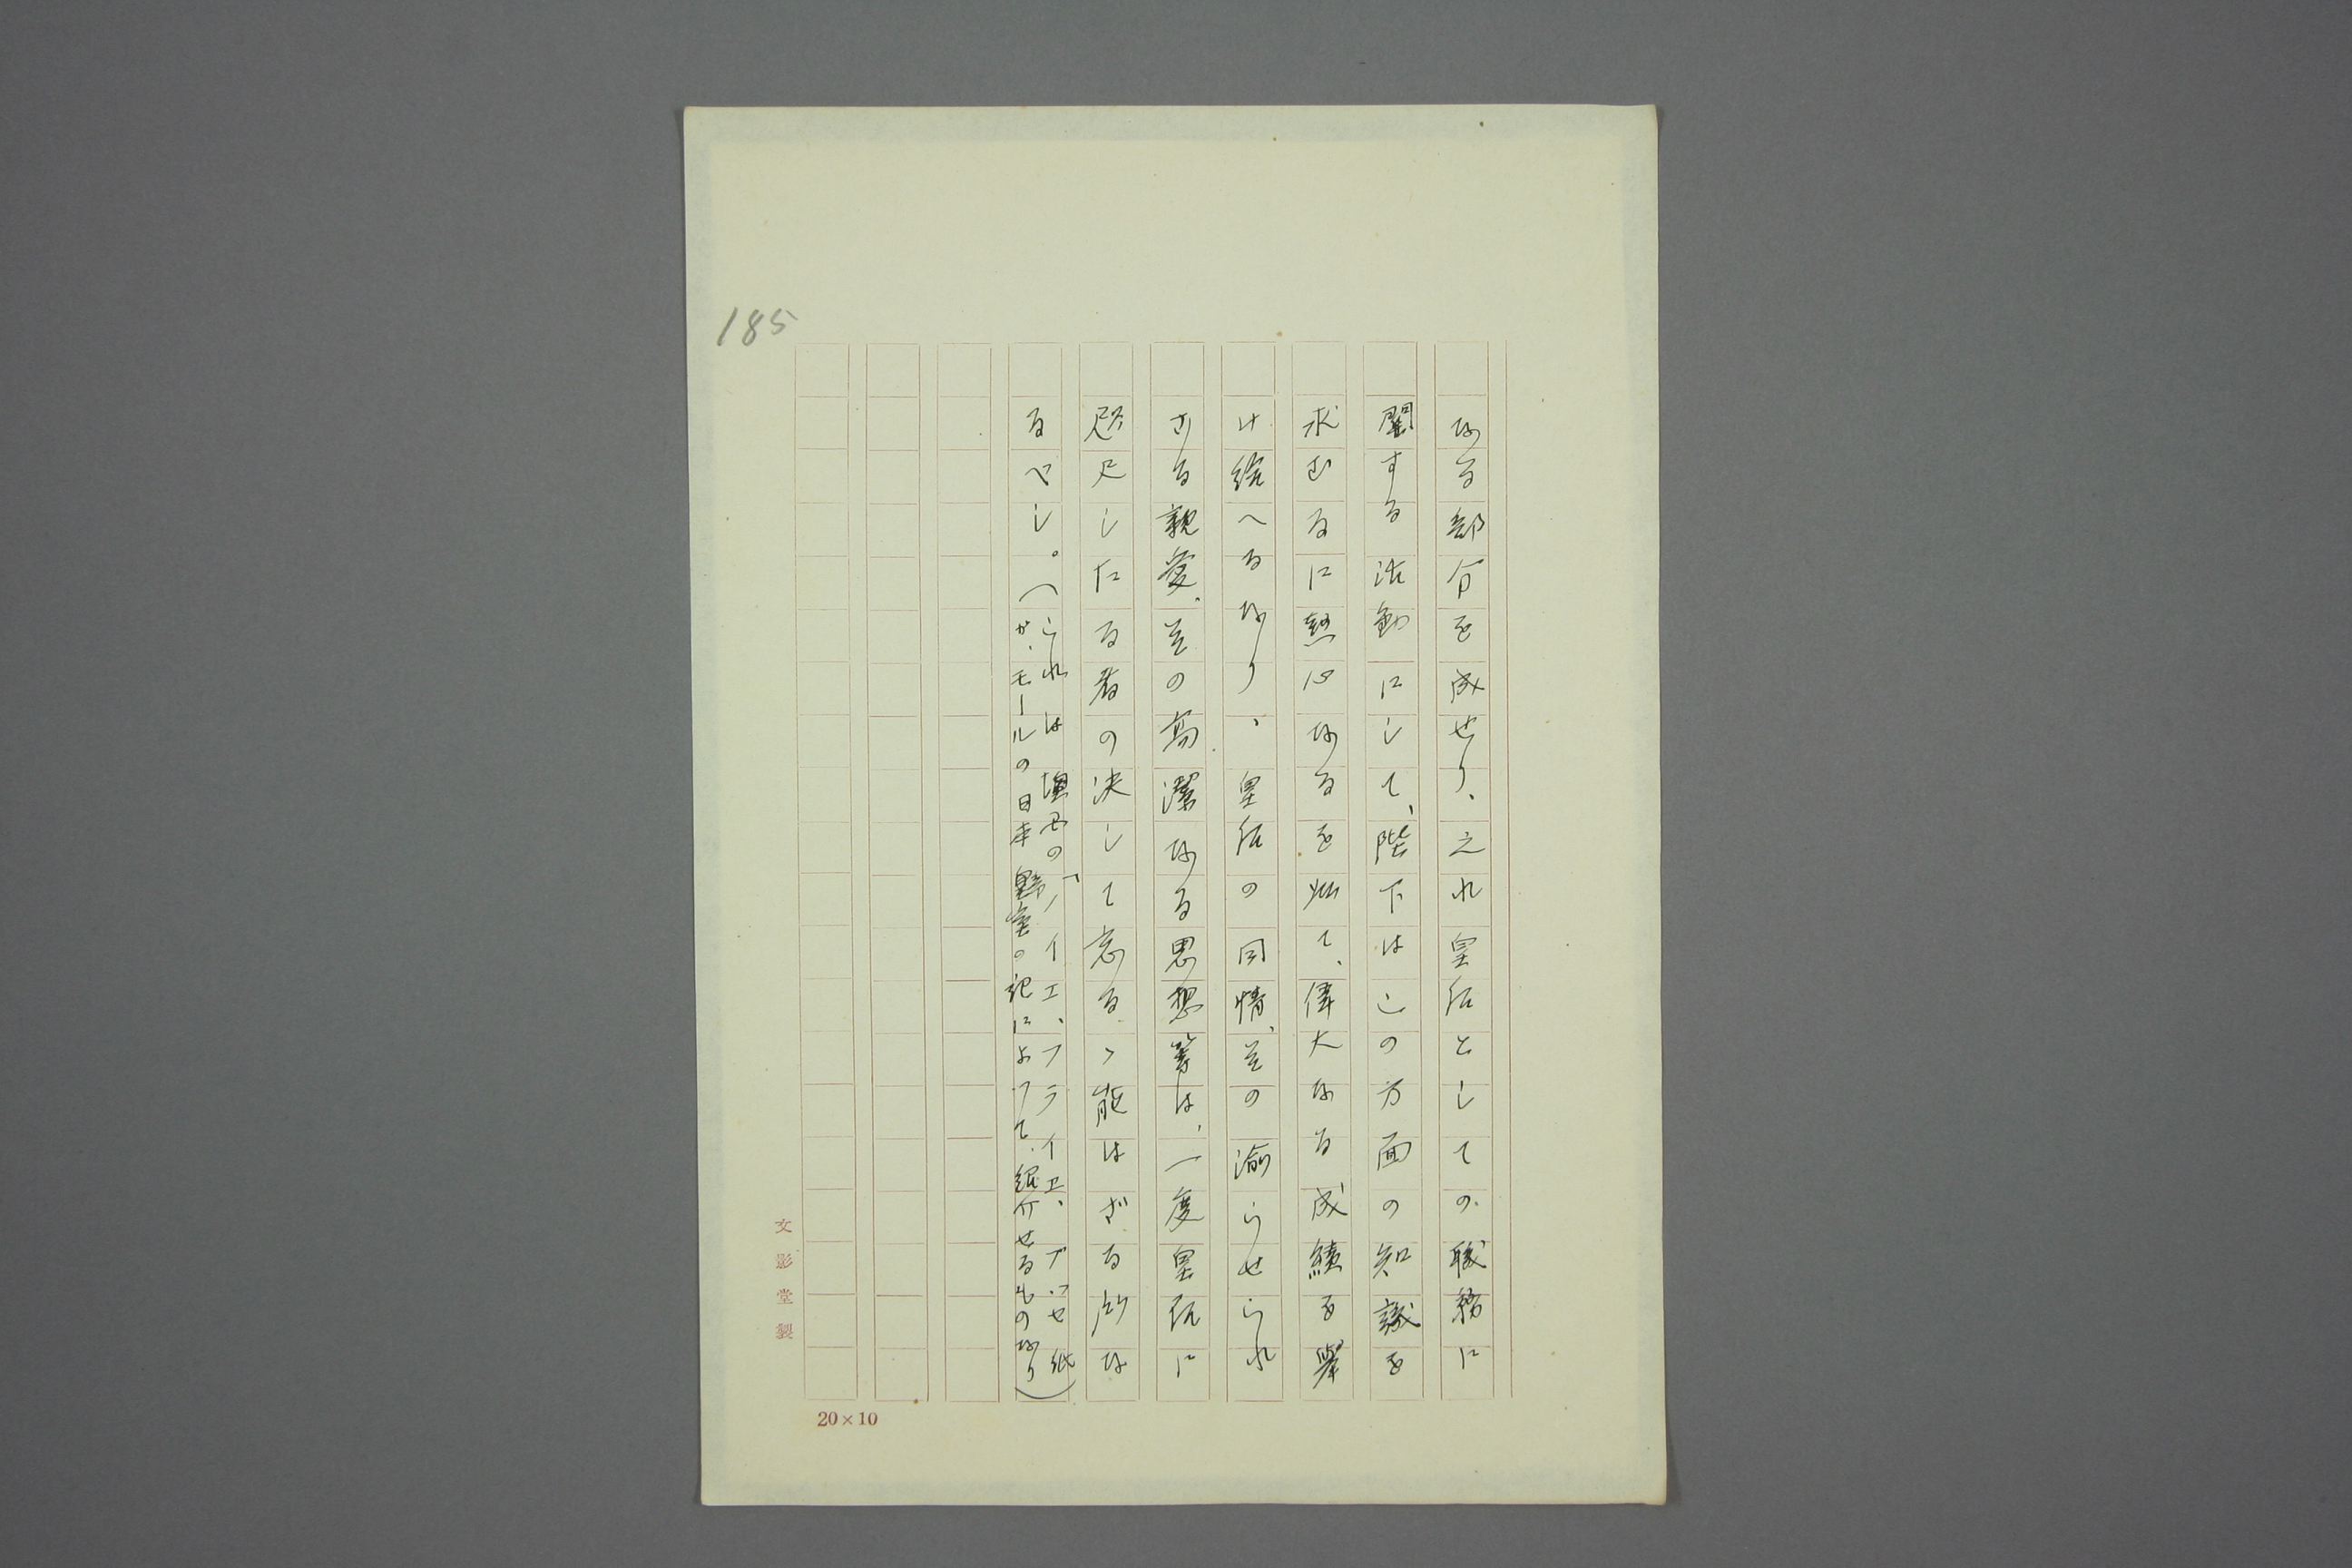 185
なる部分を成せり、之れ皇后としての職務に
関する活動にして、陛下はこの方面の知識を
求むるに熱心なるを以て、偉大なる成績を挙
け給へるなり、皇后の同情、並の渝らせられ
さる親愛、並の高潔なる思想等は、一度皇后に
咫尺したる者の決して忘るゝ能はざる所な
るべし。(これは墺国の「ノイエ、フライエ、プレッセ紙
が、モールの日本の記によって、紹介せるものなり)
文影堂製
20×10